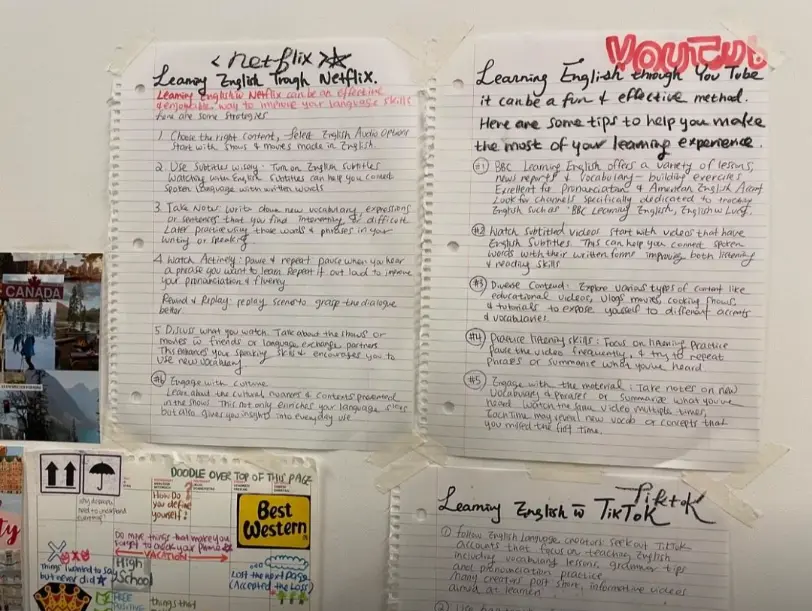 <Netflix>
Learning English Trough Netflix.
Learning English w Netflix can be an effective
& enjoyable way to improve your language skills
here are some strategies
1. Choose the right content, select English Audio Options
Start with shows & movies made in English.
2. Use Subtitles wisely: Turn on English subtitles
Watching with English subtitles can help you connect
spoken language with written words
3. Take Notes: Write down new vocabulary expressions
or sentences that you find interesting & difficult
Later practice using those words & phrases in your
writing or speaking
4. Watch Actively: pause & repeat. pause when you hear
a phrase you want to learn. Repeat it out loud to improve
your pronunciation & fluency
Rewind & Replay: replay scenes to grasp the dialogue
better.
5. Discuss what you watch. Talk about the shows or
movies w friends or language exchange partners.
This enhances your speaking skills & encourages you to
use new vocabulary
#6 Engage with culture
Learn about the cultural nuances & contexts presented
in the shows. This not only enriches your language skills
but also gives you insights into everyday use
YouTub
Learning English through YouTube
it can be a fun & effective method.
Here are some tips to help you make
the most of your learning experience.
#1 BBC Learning English offers a variety of lessons,
news reports & vocabulary-building exercises
Excellent for pronunciation & American English
Look for channels specifically dedicated to teaching
English such as "BBC Learning English, English w Lucy.
#2 Watch subtitled videos start with videos that have
English subtitles. This can help you connect spoken
words with their written forms improving both listening
& reading skills
#3 Diverse Content: Explore various types of content like
educational videos, vlogs, movies, cooking shows,
& tutorials to expose yourself to different accents
& vocabularies.
#4 Practice listening skills: Focus on listening practice
Pause the video frequently, & try to repeat
phrases or summarize what you've heard
#5 Engage with the material: Take notes on new
vocabulary & phrases or summarize what you've
heard. Watch the same video multiple times,
Each time may reveal new vocab or concepts that
you missed the first time.
CANADA
DOODLE OVER TOP OF THIS PAGE
How Do
you define
yourself?
Best
Western
Do more things that make you
forget to check your phone
VACATION
Things I wanted to say
but never did
High
School
Lost the next page
(Accepted the Loss)
FREE
things that
Tiktok
Learning English w TikTok
1 Follow English language creators: Seek out TikTok
accounts that focus on teaching English
including vocabulary lessons, grammar tips
and pronunciation practice
Many creators post short, informative videos
aimed at learners